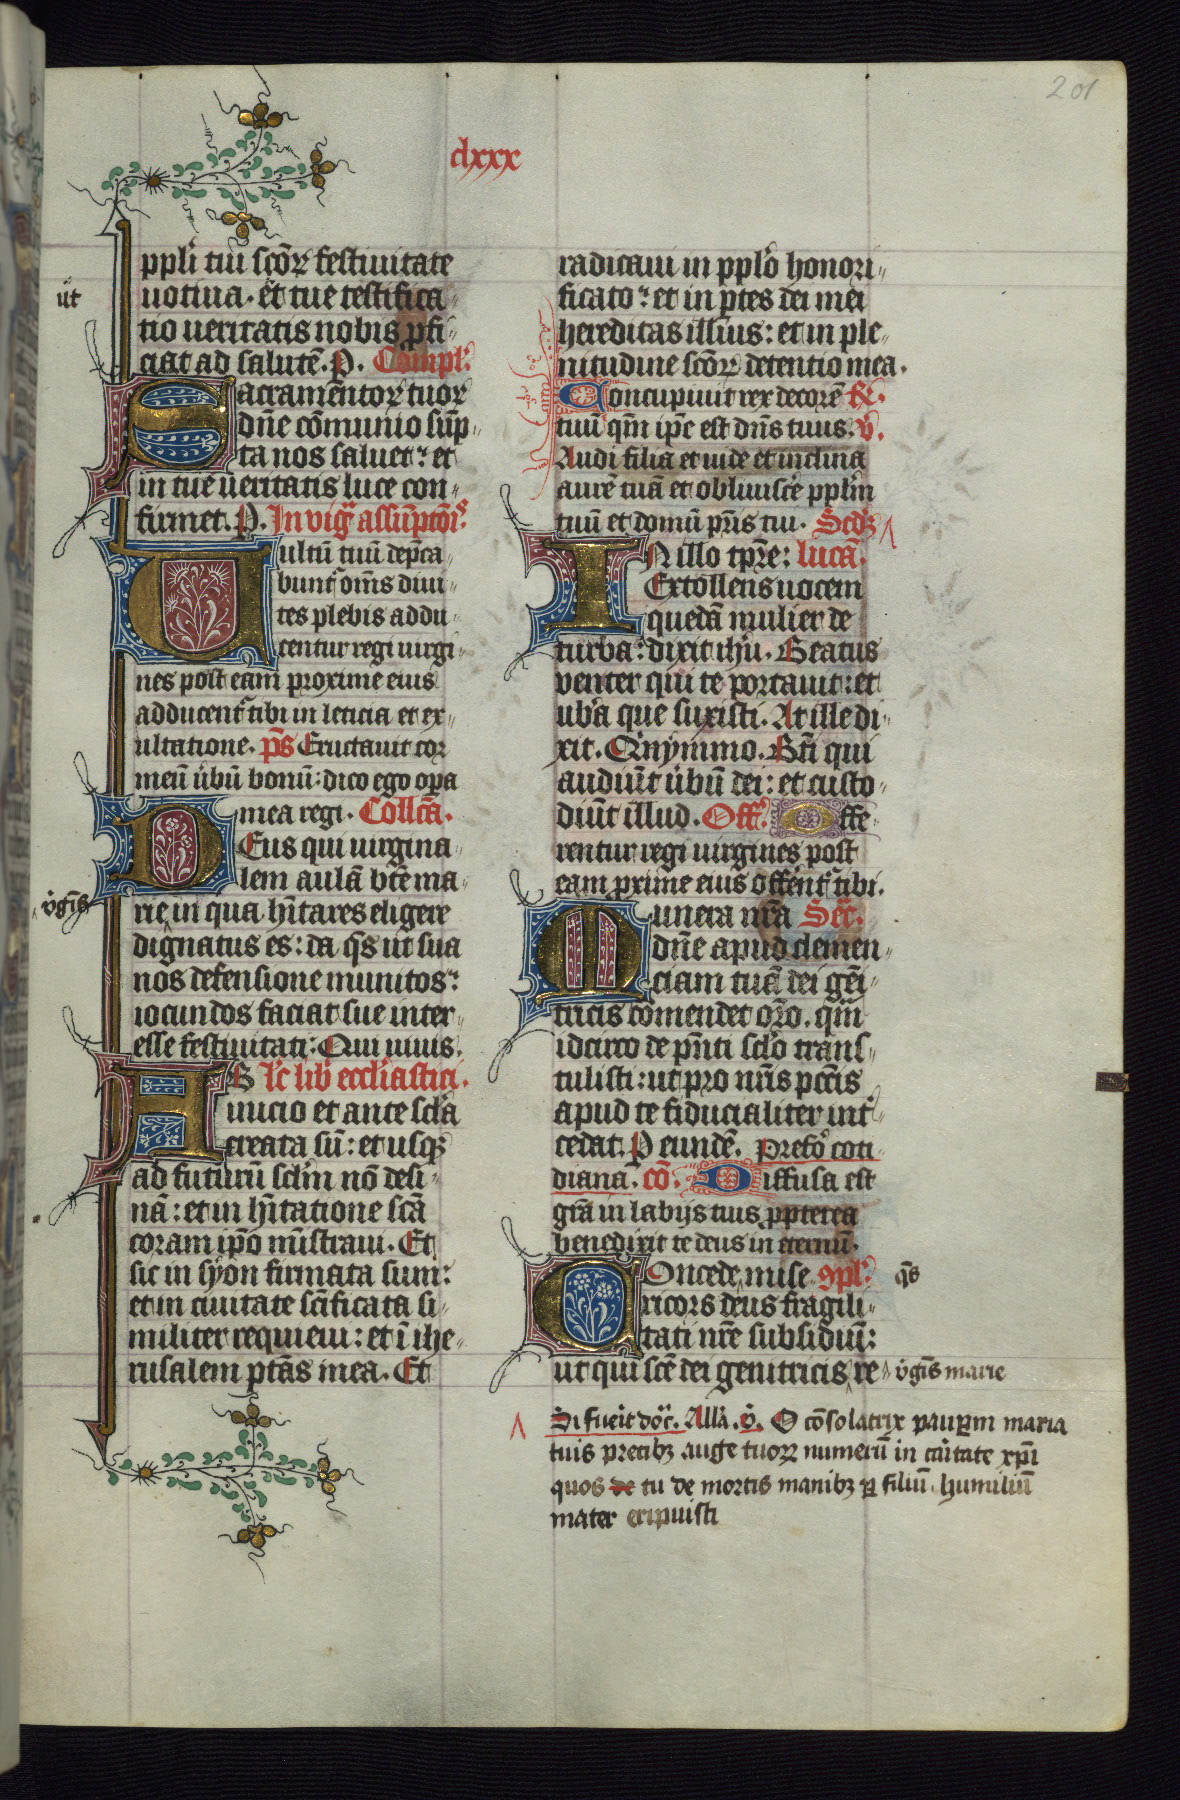 201
clxxx
ppli tui scōꝝ festiuitate
ut
uotiua · et tue testifica
tio ueritatis nobis ꝓfi
ciat ad salutē. P. Compl'.
Sacramentoꝝ tuoꝝ
dn̄e cōmunio sūp
ta nos saluet: et
in tue ueritatis luce con
firmet. P. In vig' assūpcōis
Uultū tuū dep̄ca
bunt' om̄s diui
tes plebis addu
centur regi uirgi
nes post eam proxime eius
adducent' tibi in leticia et ex
ultatione. p̄s Eructauit cor
meū ūbū bonū: dico ego oꝑa
mea regi. Coll̄ca.
DEus qui uirgina
lem aulā bt̄e ma
v̄gīs
rie in qua hītares eligere
dignatus es: da q̄s ut sua
nos defensione munitos:
iocundos faciat sue inter
esse festiuitati: Qui uiuis.
AB Lc̄ lib' eccl̄iastici.
inicio et ante scl̄a
creata sū: et usqꝫ
ad futurū scl̄m nō desi
nā: et in hītatione scā
coram ip̄o mīstraui. Et
sic in syon firmata sum:
et in ciuitate sc̄ificata si
militer requieui: et ī ihe
rusalem ptās mea. Et
radicaui in ppl̄o honori
ficato: et in ptes dei mei
hereditas illius: et in ple
nitudine scōꝝ detentio mea.
Concupiuit rex decorē R̄.
tuū qm̄ ip̄e est dn̄s tuus. v̄.
Audi filia et uide et inclina
aurē tuā et obliuisce ppl̄m
tuū et domū pr̄is tui. Scd̄ꝫ
IN illo tp̄re: lucā.
Extollens uocem
quedā mulier de
turba: dixit ih̄u. Beatus
venter qui te portauit: et
ub̄a que suxisti. At ille di
xit. Qnymmo. Bt̄i qui
audiūt ūbū dei: et custo
diūt illud. Off'. Offe
rentur regi uirgines post
eam proxime eius offerent' tibi.
Munera nr̄a Secr̄.
dn̄e apud clemen
ciam tuā dei geni
tricis cōmendet orō. quā
idcirco de pn̄ti scl̄o trans
tulisti: ut pro nr̄is pccīs
apud te fiducialiter int'
cedat. P eundē. Prefō coti
diana. cō. Diffusa est
gr̄a in labijs tuis ꝓpterea
benedixit te deus in eternū.
Concede mise 9pl'. q̄s
ricors deus fragili
tati nr̄e subsidiū:
ut qui scē dei genitricis re v̄gīs marie
Si fuerit doīc. Allā. v̄. O cōsolatrix pauꝑm maria
tuis precibꝫ auge tuoꝝ numerū in cāitate xp̄i
quos de tu de mortis manibꝫ ꝑ filiū humiliū
mater eripuisti